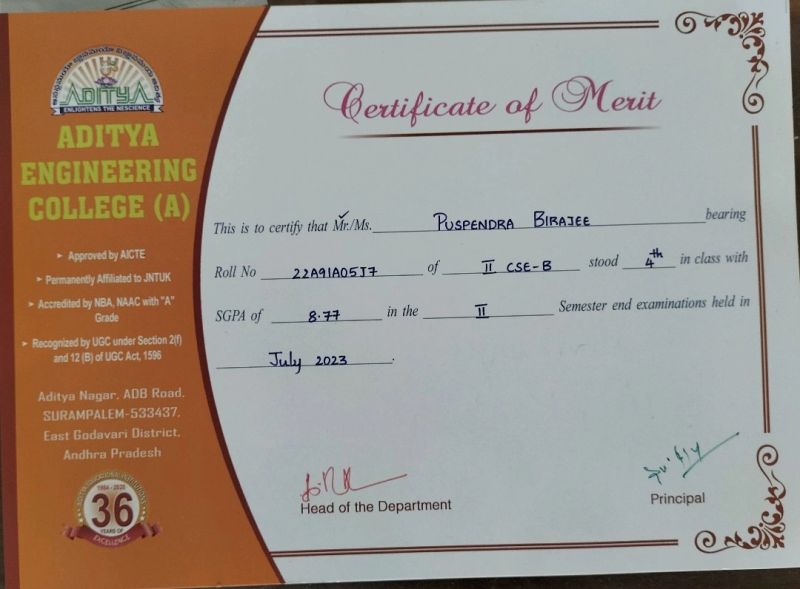 ADITYA
ENLIGHTENS THE NESCIENCE
ADITYA
ENGINEERING
COLLEGE (A)
➤ Approved by AICTE
➤ Permanently Affiliated to JNTUK
➤ Accredited by NBA, NAAC with "A"
Grade
➤ Recognized by UGC under Section 2(f)
and 12 (B) of UGC Act, 1596
Aditya Nagar, ADB Road.
SURAMPALEM-533437.
East Godavari District,
Andhra Pradesh
1984 - 2020
36
YEARS OF
EXCELLENCE
Certificate of Merit
This is to certify that Mr./Ms. PUSPENDRA BIRAJEE bearing
Roll No 22A91A05J7 of II CSE-B stood 4th in class with
SGPA of 8.77 in the II Semester end examinations held in
July 2023.
Head of the Department
Principal